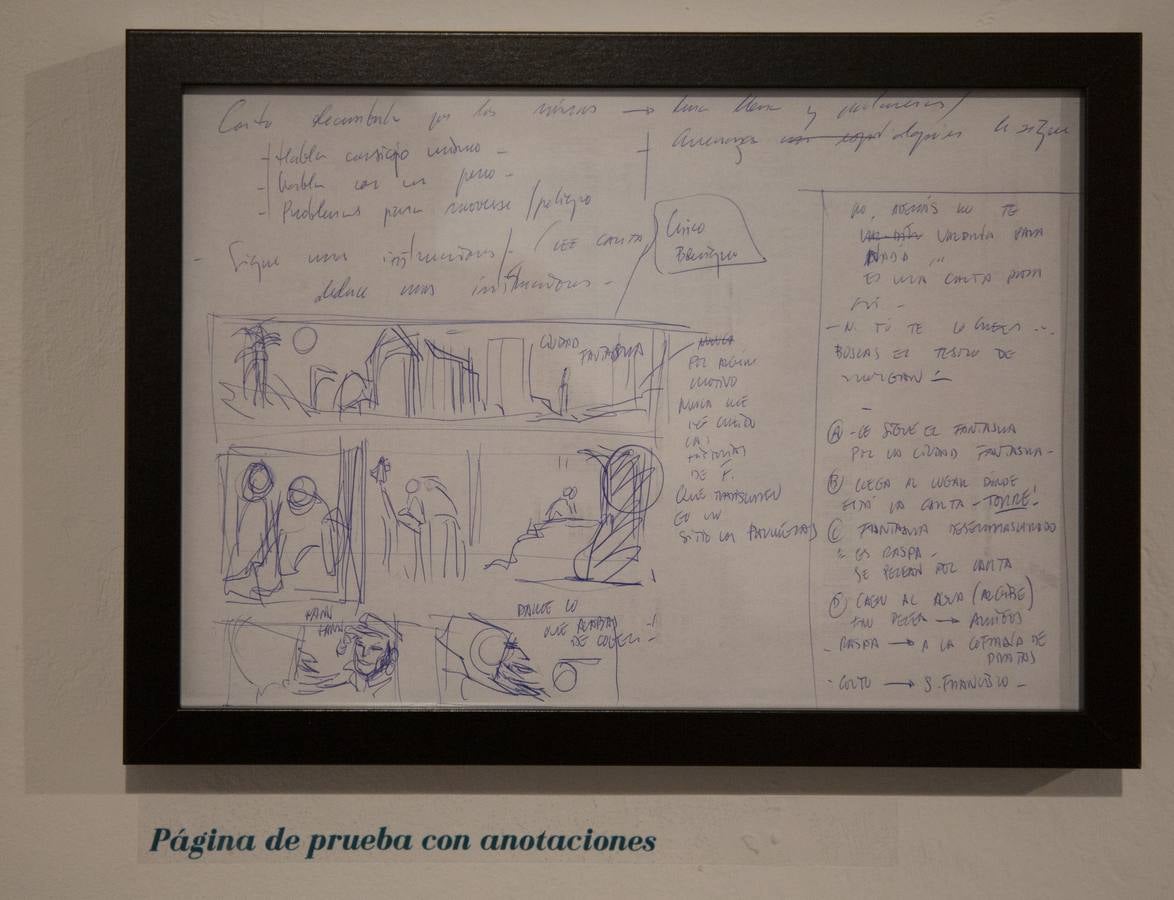 Corto deambula por las ruinas → luna llena y palmeras /
Amenaza le sigue
- Habla consigo mismo -
- Habla con un perro -
- Problemas para moverse / peligro
- Sigue unas instrucciones / - (LEE CARTA)
deduce unas instrucciones -
Chico
CIUDAD
FANTASMA
POR ALGÚN
MOTIVO
NUNCA ME
HE CREÍDO
LAS
HISTORIAS
DE F.
QUE TRANSCURREN
EN UN
SITIO
DAME LO
QUE ACABAS
DE COGER -!
NO, ADEMÁS NO TE
VALDRÍA PARA
NADA
ES UNA CARTA PARA
MÍ -
- NI TÚ TE LO CREES ...
BUSCAS EL TESORO DE
MORGAN
Ⓐ - LE SIGUE EL FANTASMA
POR LA CIUDAD FANTASMA -
Ⓑ LLEGA AL LUGAR DÓNDE
ESTÁ LA CARTA - TORRE!
Ⓒ FANTASMA DESENMASCARADO
ES RASPA -
SE PELEAN POR CARTA
Ⓓ CAEN AL AGUA (ALGIBE)
→ AMIGOS
- RASPA → A LA COFRADÍA DE
PIRATAS
- CORTO → S. FRANCISCO -
Página de prueba con anotaciones